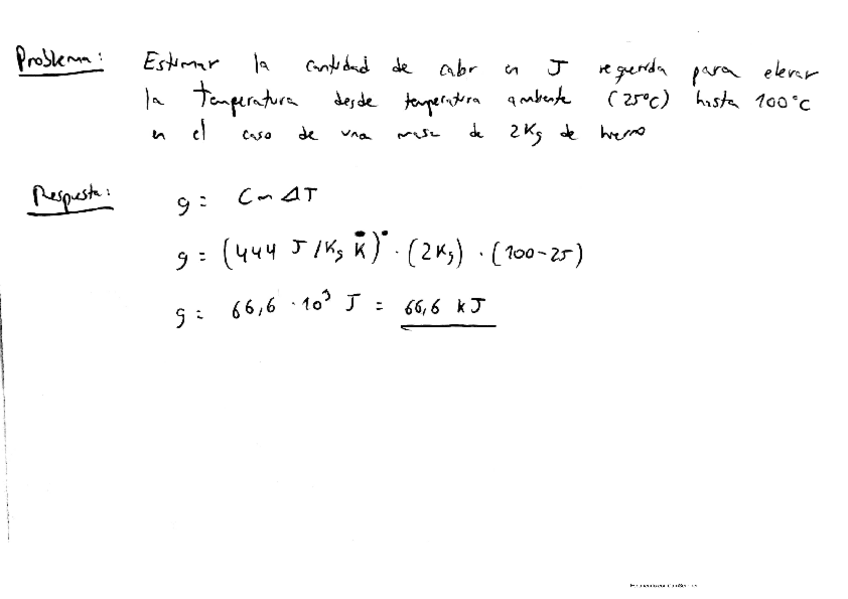 Problema: Estimar la cantidad de calor en J requerida para elevar
la temperatura desde temperatura ambiente (25°C) hasta 100°C
en el caso de una masa de 2Kg de hierro
Respuesta: q = C m ΔT
q = (444 J/Kg K) · (2Kg) · (100-25)
q = 66,6 · 10³ J = 66,6 kJ